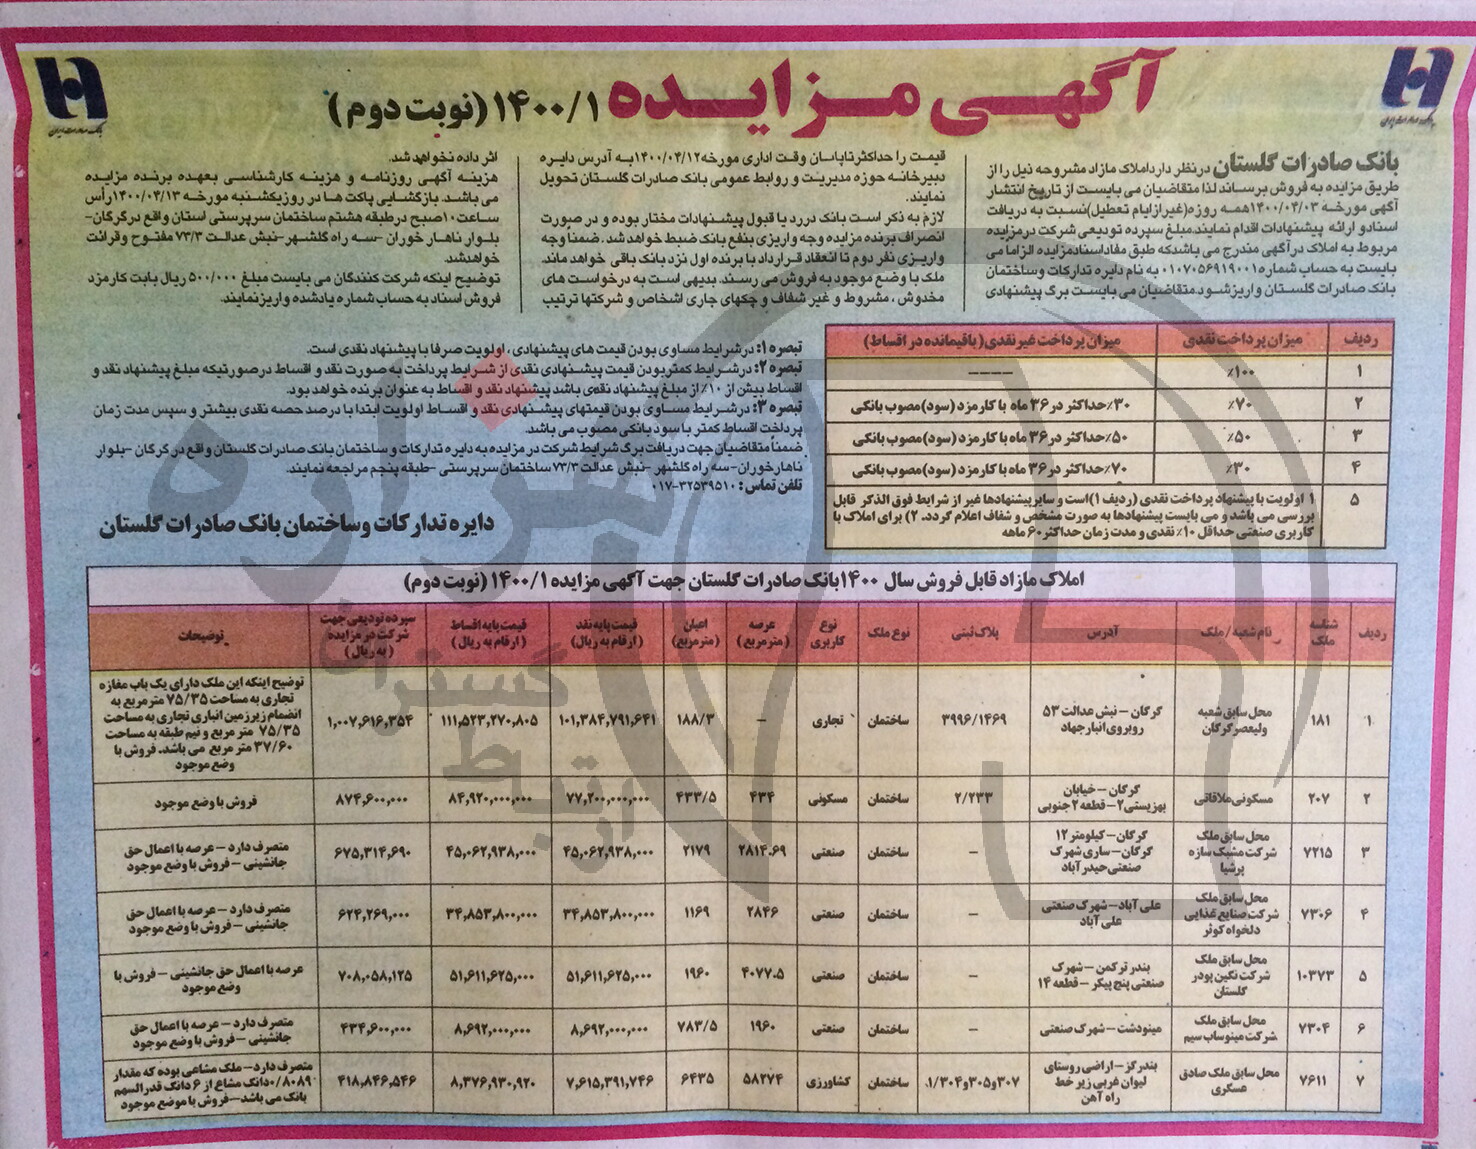 آگهی مزایده ۱۴۰۰/۱ (نوبت دوم)
بانک صادرات ایران
بانک صادرات ایران
بانک صادرات گلستان در نظر دارد املاک مازاد مشروحه ذیل را از
طریق مزایده به فروش برساند لذا متقاضیان می بایست از تاریخ انتشار
آگهی مورخه ۱۴۰۰/۰۴/۰۳ همه روزه (غیر از ایام تعطیل) نسبت به دریافت
اسناد و ارائه پیشنهادات اقدام نمایند. مبلغ سپرده تودیعی شرکت در مزایده
مربوط به املاک در آگهی مندرج می باشد که طبق مفاد اسناد مزایده الزاما می
بایست به حساب شماره ۰۱۰۷۰۵۶۹۱۹۰۰۱ به نام دایره تدارکات و ساختمان
بانک صادرات گلستان واریز شود. متقاضیان می بایست برگ پیشنهادی
قیمت را حداکثر تا پایان وقت اداری مورخه ۱۴۰۰/۰۴/۱۲ به آدرس دایره
دبیرخانه حوزه مدیریت و روابط عمومی بانک صادرات گلستان تحویل
نمایند.
لازم به ذکر است بانک در رد یا قبول پیشنهادات مختار بوده و در صورت
انصراف برنده مزایده وجه واریزی بنفع بانک ضبط خواهد شد. ضمناً وجه
واریزی نفر دوم تا انعقاد قرارداد با برنده اول نزد بانک باقی خواهد ماند.
ملک با وضع موجود به فروش می رسند. بدیهی است به درخواست های
مخدوش، مشروط و غیر شفاف و چکهای جاری اشخاص و شرکتها ترتیب
اثر داده نخواهد شد.
هزینه آگهی روزنامه و هزینه کارشناسی بعهده برنده مزایده
می باشد. بازگشایی پاکت ها در روز یکشنبه مورخه ۱۴۰۰/۰۴/۱۳ رأس
ساعت ۱۰ صبح در طبقه هشتم ساختمان سرپرستی استان واقع در گرگان-
بلوار ناهار خوران -سه راه گلشهر- نبش عدالت ۷۳/۳ مفتوح و قرائت
خواهد شد.
توضیح اینکه شرکت کنندگان می بایست مبلغ ۵۰۰/۰۰۰ ریال بابت کارمزد
فروش اسناد به حساب شماره یاد شده واریز نمایند.
ردیف میزان پرداخت نقدی میزان پرداخت غیر نقدی (باقیمانده در اقساط)
۱ ٪۱۰۰ ----
۲ ٪۷۰ ۳۰٪ حداکثر در ۳۶ ماه با کارمزد (سود) مصوب بانکی
۳ ٪۵۰ ۵۰٪ حداکثر در ۳۶ ماه با کارمزد (سود) مصوب بانکی
۴ ٪۳۰ ۷۰٪ حداکثر در ۳۶ ماه با کارمزد (سود) مصوب بانکی
۵ ۱ اولویت با پیشنهاد پرداخت نقدی (ردیف ۱) است و سایر پیشنهادها غیر از شرایط فوق الذکر قابل
بررسی می باشد و می بایست پیشنهادها به صورت مشخص و شفاف اعلام گردد. ۲) برای املاک با
کاربری صنعتی حداقل ۱۰٪ نقدی و مدت زمان حداکثر ۶۰ ماهه
تبصره ۱: در شرایط مساوی بودن قیمت های پیشنهادی، اولویت صرفا با پیشنهاد نقدی است.
تبصره ۲: در شرایط کمتر بودن قیمت پیشنهادی نقدی از شرایط پرداخت به صورت نقد و اقساط در صورتیکه مبلغ پیشنهاد نقد و
اقساط بیش از ۱۰٪ از مبلغ پیشنهاد نقدی باشد پیشنهاد نقد و اقساط به عنوان برنده خواهد بود.
تبصره ۳: در شرایط مساوی بودن قیمتهای پیشنهادی نقد و اقساط اولویت ابتدا با درصد حصه نقدی بیشتر و سپس مدت زمان
پرداخت اقساط کمتر با سود بانکی مصوب می باشد.
ضمناً متقاضیان جهت دریافت برگ شرایط شرکت در مزایده به دایره تدارکات و ساختمان بانک صادرات گلستان واقع در گرگان -بلوار
ناهارخوران- سه راه گلشهر -نبش عدالت ۷۳/۳ ساختمان سرپرستی -طبقه پنجم مراجعه نمایند.
تلفن تماس: ۳۲۵۳۹۵۱۰-۰۱۷
دایره تدارکات و ساختمان بانک صادرات گلستان
املاک مازاد قابل فروش سال ۱۴۰۰ بانک صادرات گلستان جهت آگهی مزایده ۱۴۰۰/۱ (نوبت دوم)
ردیف شناسه ملک نام شعبه / ملک آدرس پلاک ثبتی نوع ملک نوع کاربری عرصه (مترمربع) اعیان (مترمربع) قیمت پایه نقد (ارقام به ریال) قیمت پایه اقساط (ارقام به ریال) سپرده تودیعی جهت شرکت در مزایده (به ریال) توضیحات
۱ ۱۸۱ محل سابق شعبه ولیعصر گرگان گرگان - نبش عدالت ۵۳ روبروی انبار جهاد ۳۹۹۶/۱۴۶۹ ساختمان تجاری – ۱۸۸/۳ ۱۰۱,۳۸۴,۷۹۱,۶۴۱ ۱۱۱,۵۲۳,۲۷۰,۸۰۵ ۱,۰۰۷,۶۱۶,۳۵۴ توضیح اینکه این ملک دارای یک باب مغازه تجاری به مساحت ۷۵/۳۵ مترمربع به انضمام زیرزمین انباری تجاری به مساحت ۷۵/۳۵ متر مربع و نیم طبقه به مساحت ۳۷/۶۰ متر مربع می باشد. فروش با وضع موجود
۲ ۲۰۷ مسکونی ملاقاتی گرگان - خیابان بهزیستی ۲ - قطعه ۲ جنوبی ۲/۲۳۳ ساختمان مسکونی ۴۳۴ ۴۳۳/۵ ۷۷,۲۰۰,۰۰۰,۰۰۰ ۸۴,۹۲۰,۰۰۰,۰۰۰ ۸۷۴,۶۰۰,۰۰۰ فروش با وضع موجود
۳ ۷۲۱۵ محل سابق ملک شرکت مشبک سازه پرشیا گرگان - کیلومتر ۱۲ گرگان - ساری شهرک صنعتی حیدرآباد – ساختمان صنعتی ۲۸۱۴.۶۹ ۲۱۷۹ ۴۵,۰۶۲,۹۳۸,۰۰۰ ۴۵,۰۶۲,۹۳۸,۰۰۰ ۶۷۵,۳۱۴,۶۹۰ متصرف دارد - عرصه با اعمال حق جانشینی - فروش با وضع موجود
۴ ۷۳۰۶ محل سابق ملک شرکت صنایع غذایی دلخواه کوثر علی آباد - شهرک صنعتی علی آباد – ساختمان صنعتی ۲۸۴۶ ۱۱۶۹ ۳۴,۸۵۳,۸۰۰,۰۰۰ ۳۴,۸۵۳,۸۰۰,۰۰۰ ۶۲۴,۲۶۹,۰۰۰ متصرف دارد - عرصه با اعمال حق جانشینی - فروش با وضع موجود
۵ ۱۰۳۷۳ محل سابق ملک شرکت نگین پودر گلستان بندر ترکمن - شهرک صنعتی پنج پیکر - قطعه ۱۴ – ساختمان صنعتی ۴۰۷۷.۵ ۱۹۶۰ ۵۱,۶۱۱,۶۲۵,۰۰۰ ۵۱,۶۱۱,۶۲۵,۰۰۰ ۷۰۸,۰۵۸,۱۲۵ عرصه با اعمال حق جانشینی - فروش با وضع موجود
۶ ۷۳۰۴ محل سابق ملک شرکت مینو ساب سیم مینودشت - شهرک صنعتی – ساختمان صنعتی ۱۹۶۰ ۷۸۳/۵ ۸,۶۹۲,۰۰۰,۰۰۰ ۸,۶۹۲,۰۰۰,۰۰۰ ۴۳۴,۶۰۰,۰۰۰ متصرف دارد - عرصه با اعمال حق جانشینی - فروش با وضع موجود
۷ ۷۶۱۱ محل سابق ملک صادق عسکری بندرگز - اراضی روستای لیوان غربی زیر خط راه آهن ۳۰۷و۳۰۵و۱/۳۰۴. ساختمان کشاورزی ۵۸۲۷۴ ۶۴۳۵ ۷,۶۱۵,۳۹۱,۷۴۶ ۸,۳۷۶,۹۳۰,۹۲۰ ۴۱۸,۸۴۶,۵۴۶ متصرف دارد - ملک مشاعی بوده که مقدار ۰/۸۰۸۹ دانگ مشاع از ۶ دانگ قدرالسهم بانک می باشد - فروش با موضع موجود